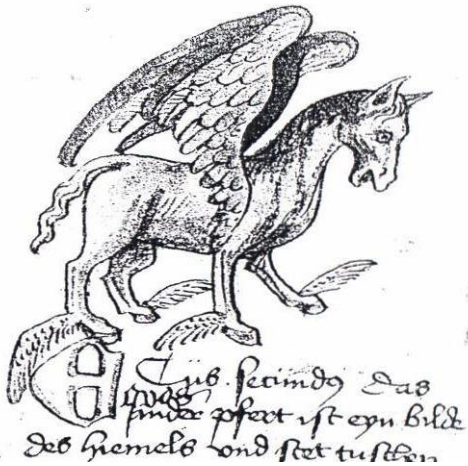 Equus secundus das
ander pfert ist eyn bilde
des hiemels vnd stet tuschen